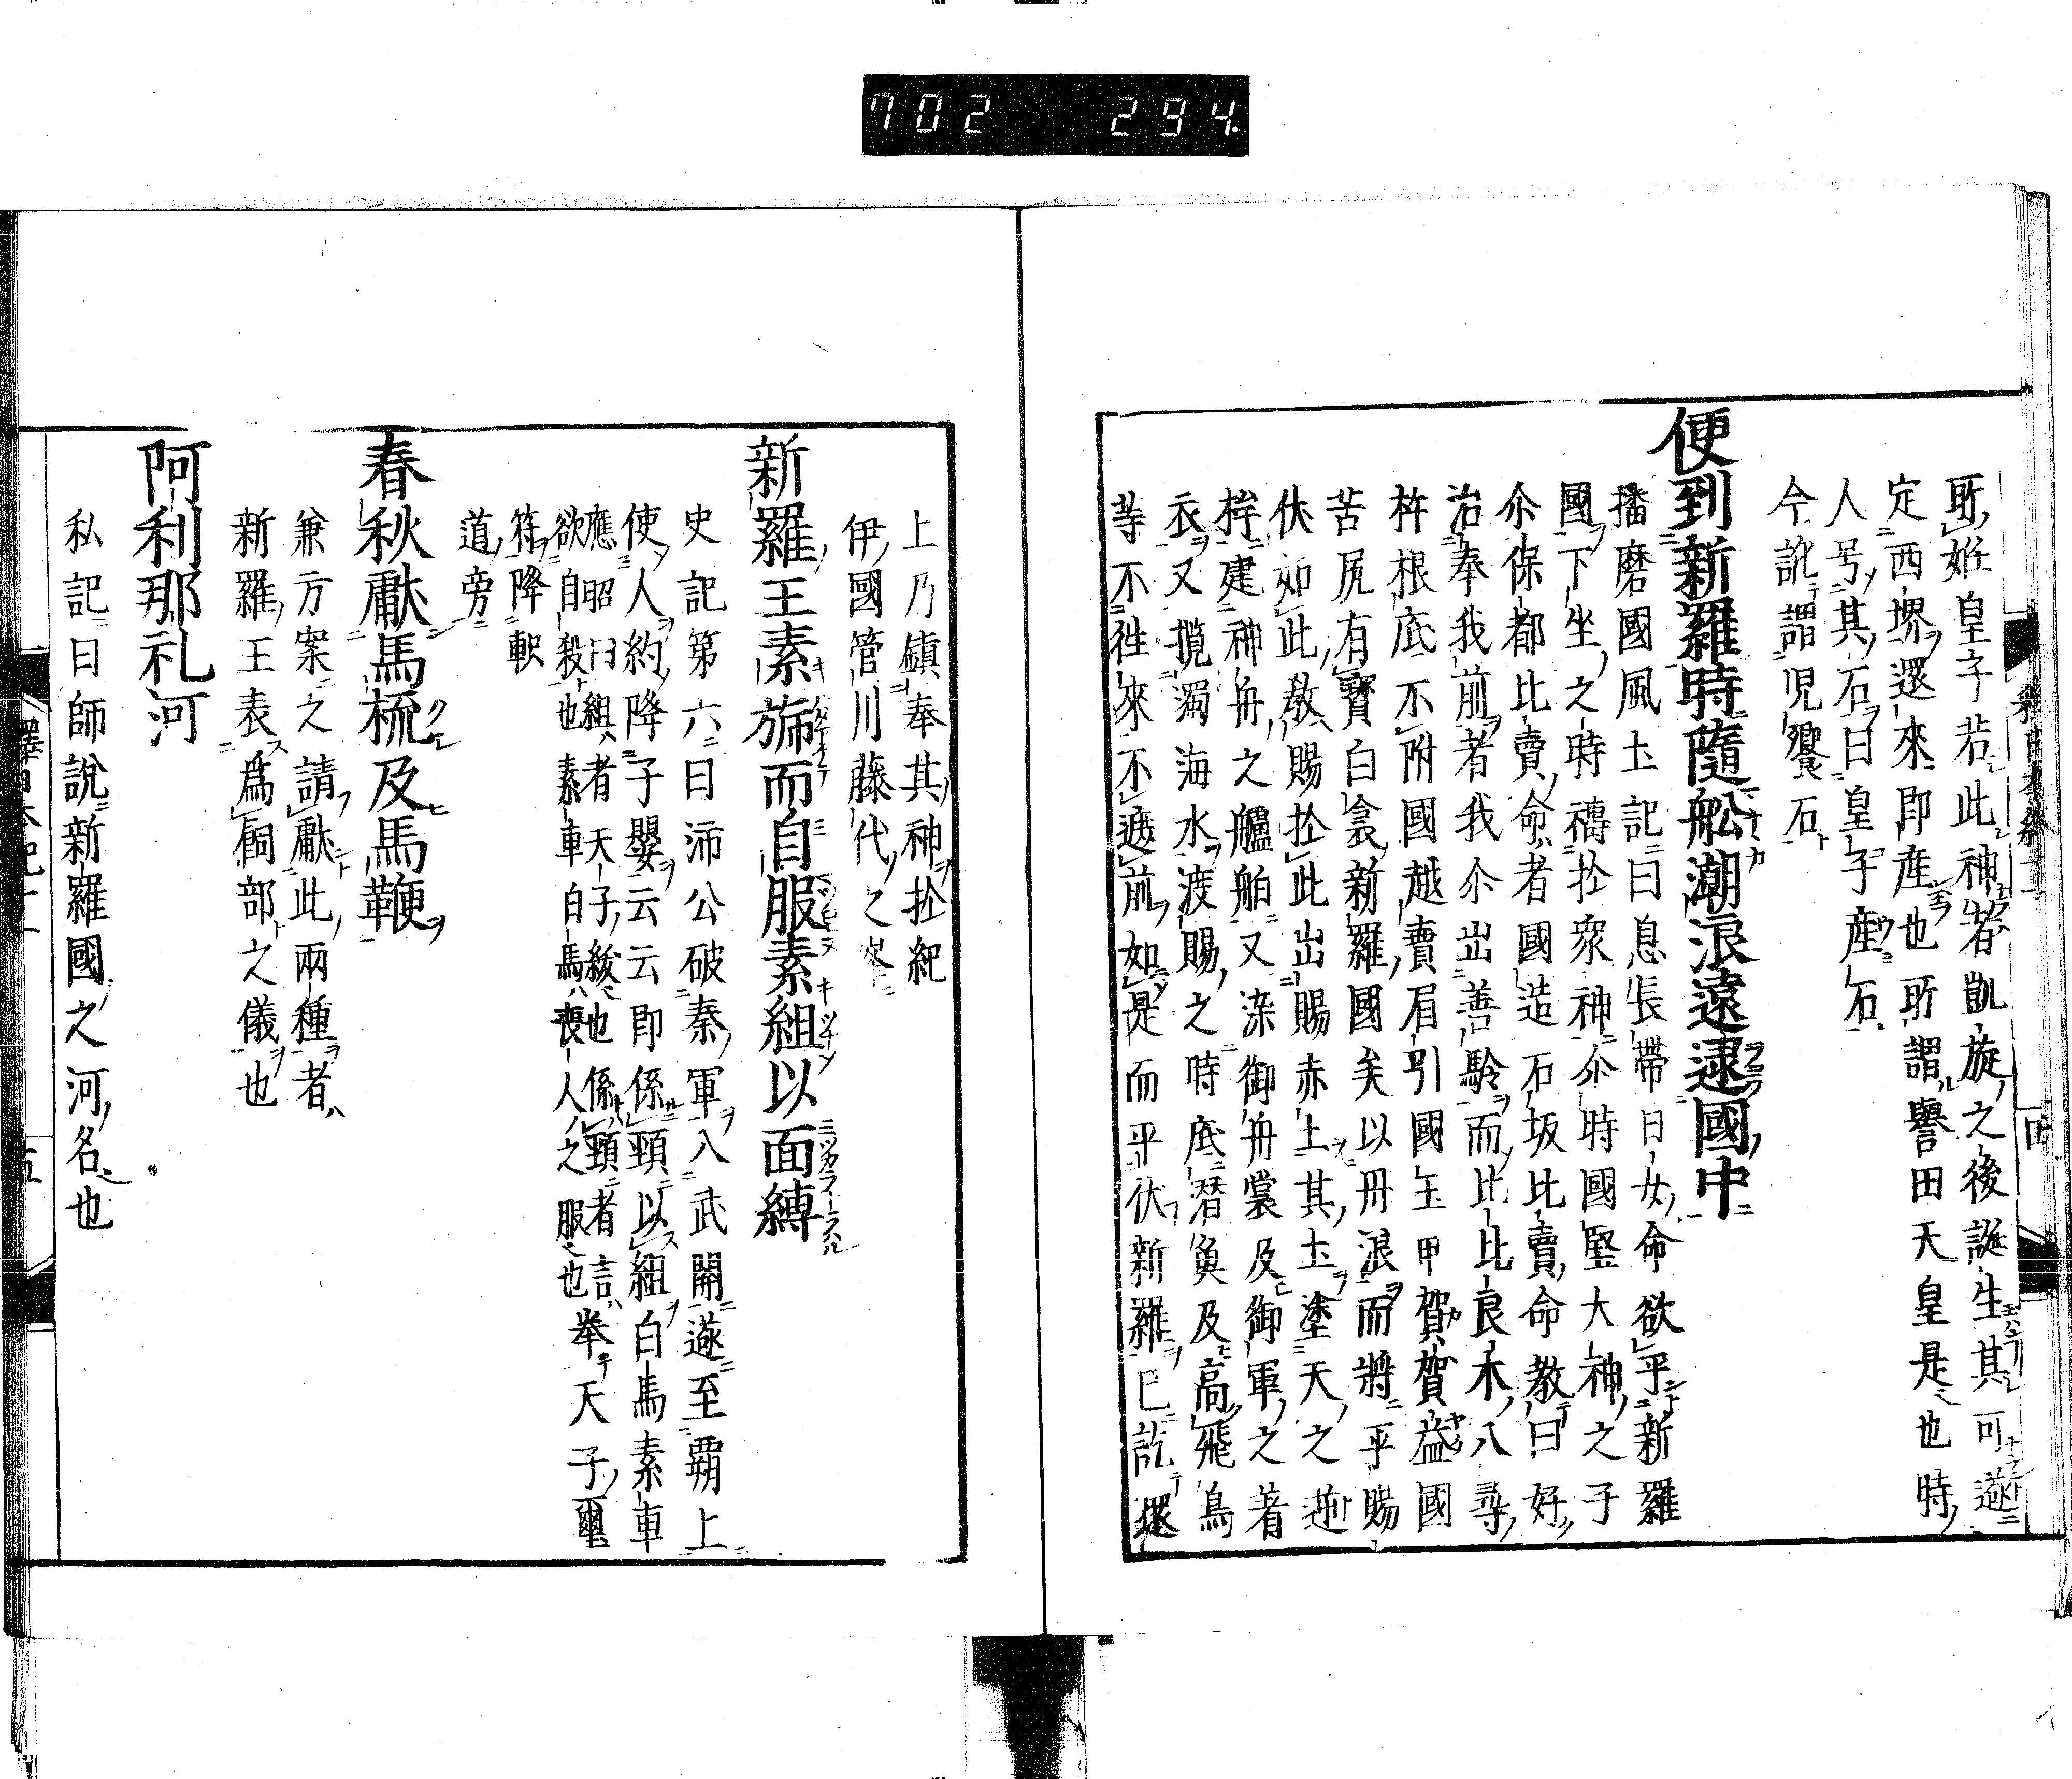 702 294
所姙皇子若此神者凱旋之後誕生其可遂
定西堺還來即産也所謂譽田天皇是也時
人号其石曰皇子産石
今訛謂児饗石
便到新羅時隨舩潮浪遠逮國中
播磨國風土記曰息長帶日女命欲平新羅
國下坐之時禱於衆神尒時國堅大神之子
尒保都比賣命者國造石坂比賣命教曰好
治奉我前者我尒出善驗而比比良木八尋
桙根底不附國越賣眉引國玉甲賀賀益國
苦尻有寶白衾新羅國矣以丹浪而將平賜
伏如此教賜於此出賜赤土其土塗天之逆
桙建神舟之艫舳又染御舟裳及御軍之著
衣又攪濁海水渡賜之時底潜魚及高飛鳥
等不徃來不遮前如是而平伏新羅已訖還
上乃鎮奉其神於紀
伊國管川藤代之峯
新羅王素旆而自服素組以面縛
史記第六曰沛公破秦軍入武關遂至覇上
使人約降子嬰云云即係頸以組白馬素車
應昭曰組者天子紱也係頸者言
欲自殺也素車白馬喪人之服也
奉天子璽
符降軹
道旁
春秋獻馬梳及馬鞭
兼方案之請獻此兩種者
新羅王表為飼部之儀也
阿利那礼河
私記曰師說新羅國之河名也